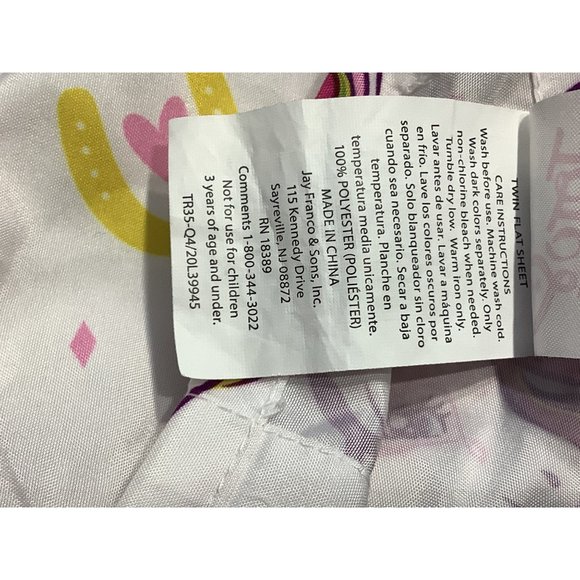 TWIN FLAT SHEET
CARE INSTRUCTIONS
Wash before use. Machine wash cold.
Wash dark colors separately. Only
non-chlorine bleach when needed.
Tumble dry low. Warm iron only.
Lavar antes de usar. Lavar a máquina
en frío. Lave los colores oscuros por
separado. Solo blanqueador sin cloro
cuando sea necesario. Secar a baja
temperatura. Planche en
temperatura media unicamente.
100% POLYESTER (POLIÉSTER)
MADE IN CHINA
Jay Franco & Sons, Inc.
115 Kennedy Drive
Sayreville, NJ 08872
RN 18389
Comments 1-800-344-3022
Not for use for children
3 years of age and under.
TR35-Q4/20L39945